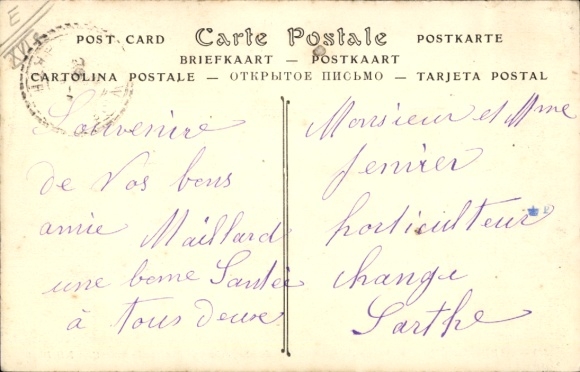 E
XVI
POST CARD Carte Postale POSTKARTE
BRIEFKAART — POSTKAART
CARTOLINA POSTALE — ОТКРЫТОЕ ПИСЬМО — TARJETA POSTAL
Souvenire
de Vos bons
amie Maillard
une bonne Santée
à Tous deux
Monsieur et Mme
horticulteur
change
Sarthe